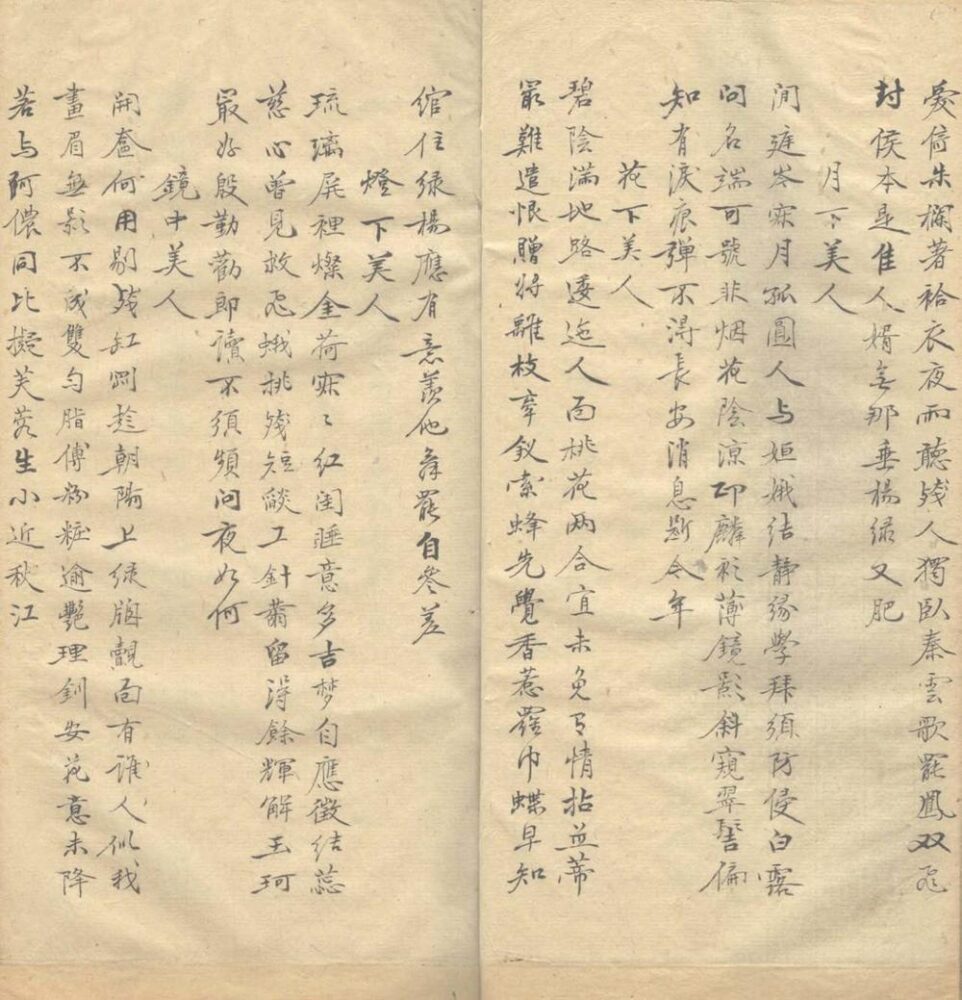 愛倚朱欄著袷衣夜雨聽残人獨臥秦雲歌罷鳳双飛
封侯本是佳人婿無那垂楊綠又肥
月下美人
閒庭岑寂月孤圓人与姮娥結静緣學拜須防侵白露
問名端可號非烟花陰凉印麟衫薄鏡影斜窺翠髻偏
知有淚痕彈不得長安消息斷今年
花下美人
碧陰滿地路逶迤人面桃花两合宜未免有情拈並蒂
最難遣恨贈將離枝牵釵索蜂先覺香惹羅巾蝶早知
綰住綠楊應有意羡他舞罷自參差
燈下美人
琉璃屏裡燦金荷寂〻紅闺睡意多吉梦自應徵结蕊
慈心曾見救飛蛾挑残短燄工針黹留得餘輝解玉珂
最好殷勤勸郎讀不須頻问夜如何
鏡中美人
開奩何用剔残缸剛趁朝陽上綠牕覿面有誰人似我
畫眉無影不成雙匀脂傅粉粧逾艷理釧安花意未降
若与阿儂同比擬芙蓉生小近秋江